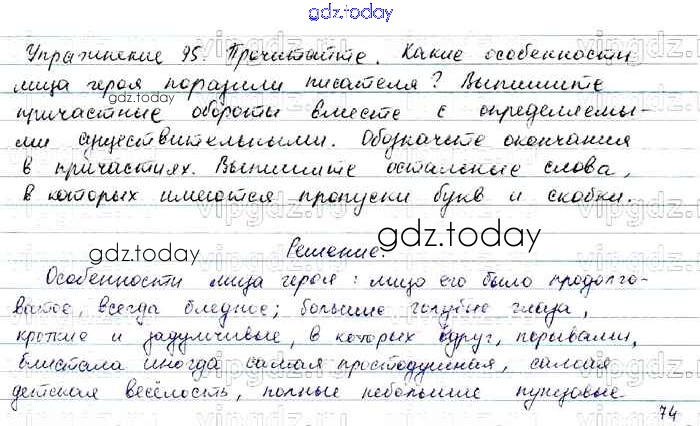 gdz.today
Упражнение 95. Прочитайте. Какие особенности
лица героя поразили писателя? Выпишите
gdz.today
причастные обороты вместе с определяемы-
ми существительными. Обозначьте окончания
в причастиях. Выпишите остальные слова,
в которых имеются пропуски букв и скобки.
gdz.today
gdz.today
Решение.
Особенности лица героя: лицо его было продолго-
ватое, всегда бледное; большие голубые глаза,
кроткие и задумчивые, в которых вдруг, порывами,
блистала иногда самая простодушная, самая
детская весёлость, полные небольшие пунцовые
74